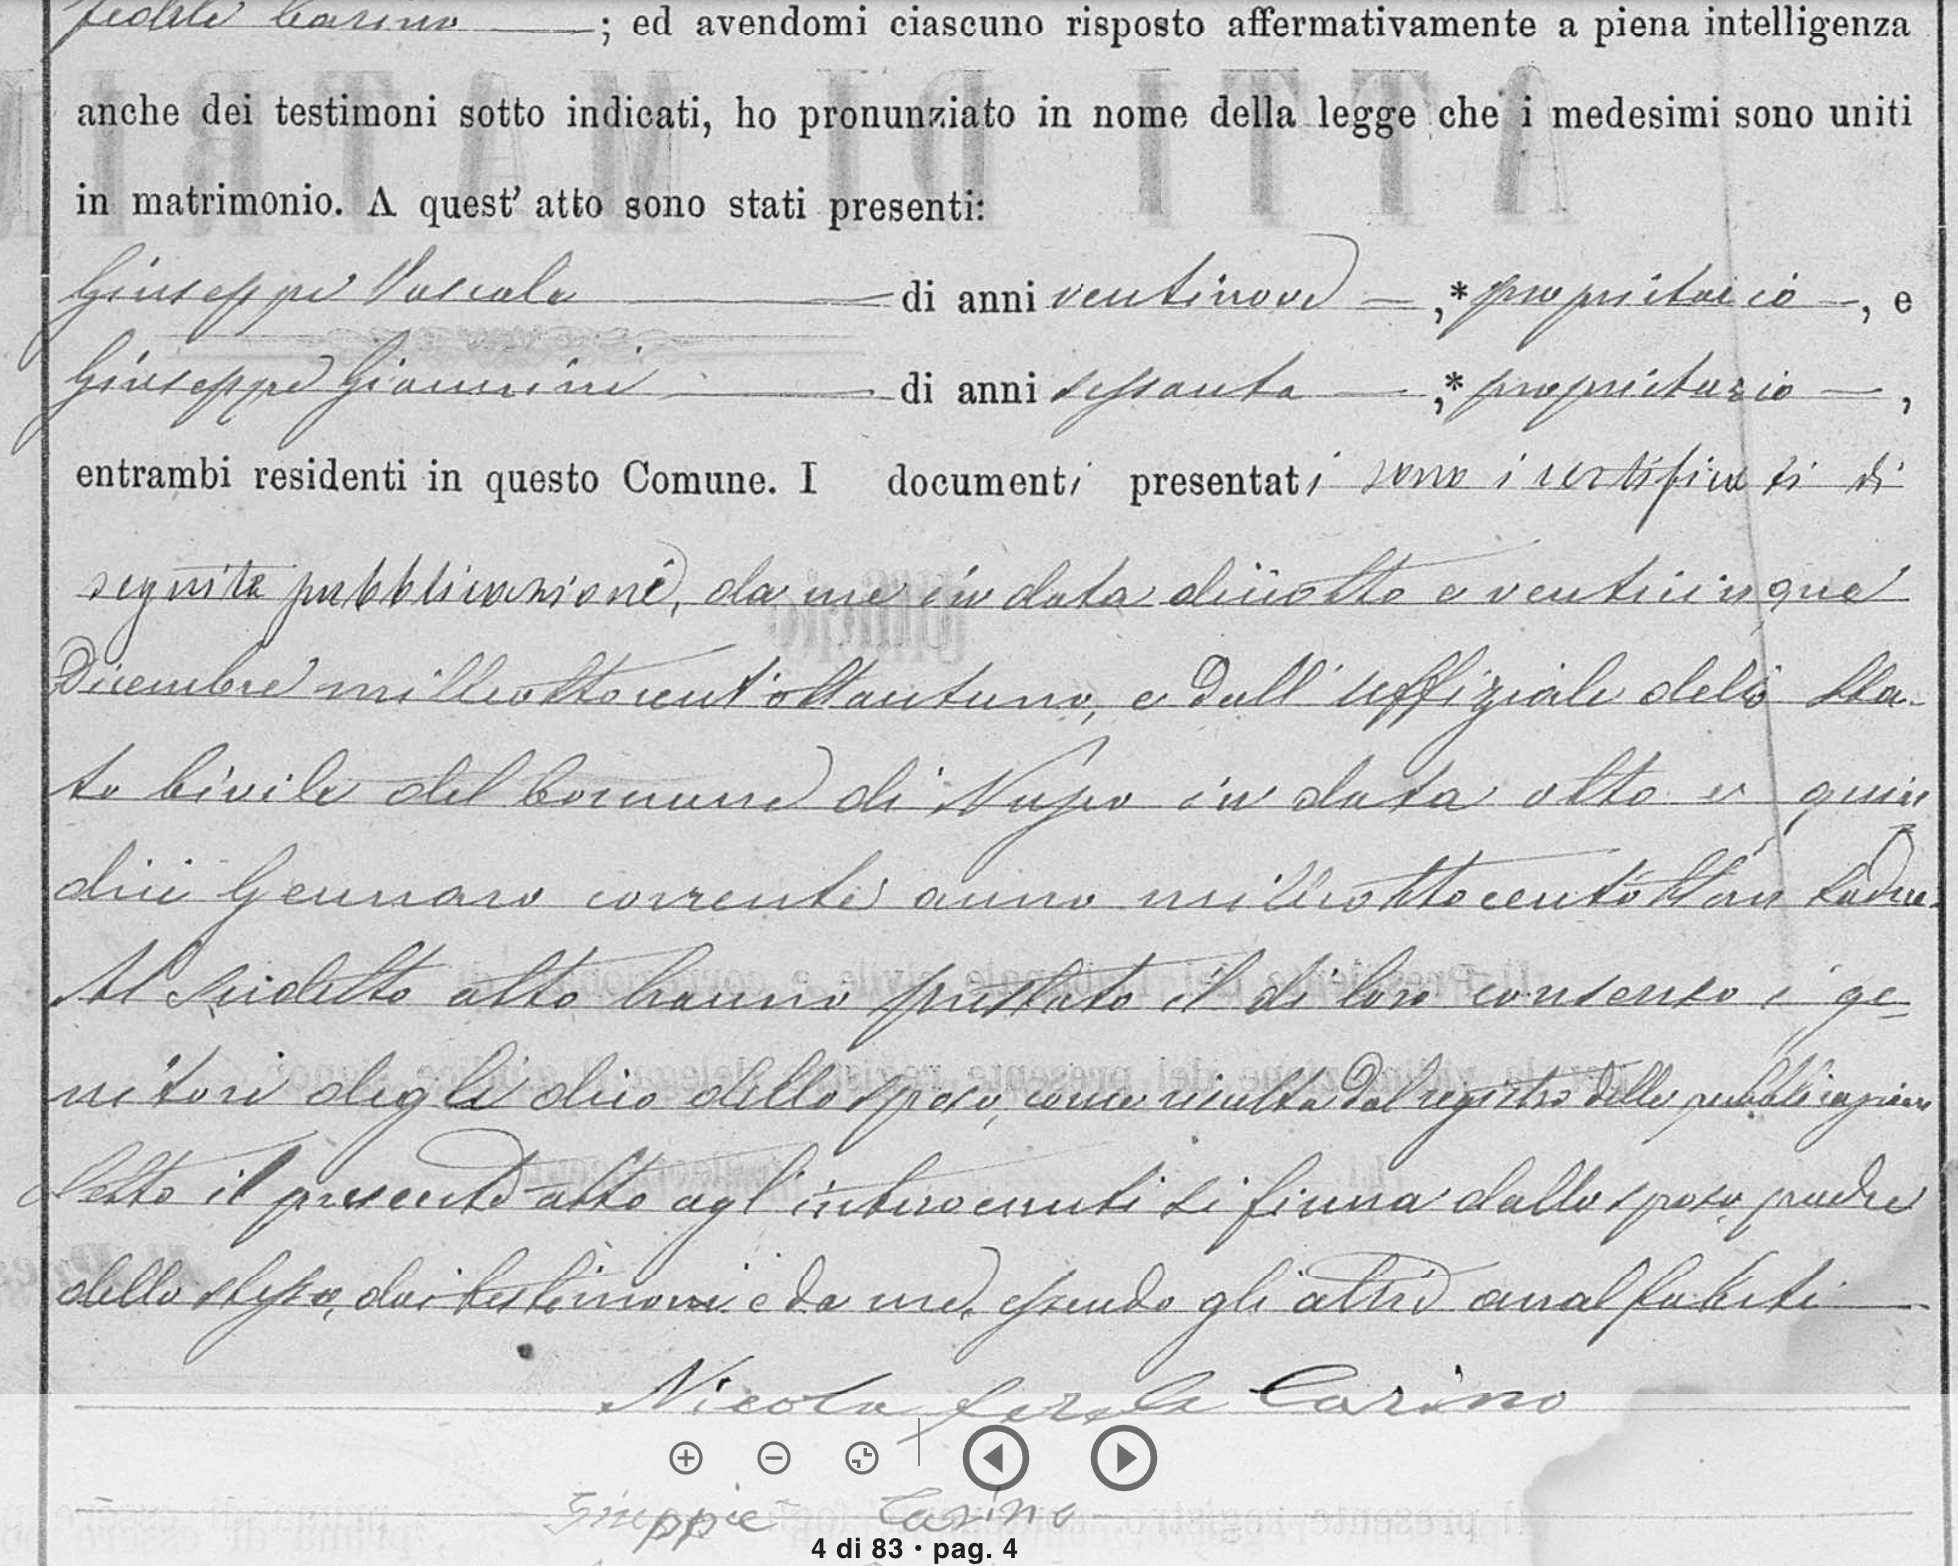 Fedele Carino ; ed avendomi ciascuno risposto affermativamente a piena intelligenza
anche dei testimoni sotto indicati, ho pronunziato in nome della legge che i medesimi sono uniti
in matrimonio. A quest' atto sono stati presenti:
Giuseppe di anni ventinove —,* proprietario —, e
Giuseppe Giannini di anni sessanta —,* proprietario —,
entrambi residenti in questo Comune. I documenti presentati sono i certificati di
seguite pubblicazioni, da me in data diciotto e venticinque
Dicembre milleottocent'ottantuno, e dall'uffiziale dello Sta-
to Civile del Comune di in data otto e quin
dici Gennaro corrente anno milleottocentottantadue.
Al sudetto atto hanno prestato il di loro consenso i ge-
nitori dello sposo, come risulta dal registro delle pubblicazioni
Letto il presente atto agl'intervenuti si firma dallo sposo, padre
dello stesso, dai testimoni e da me, essendo gli altri analfabeti
Nicola Carino
Giuseppe Carino
4 di 83 • pag. 4